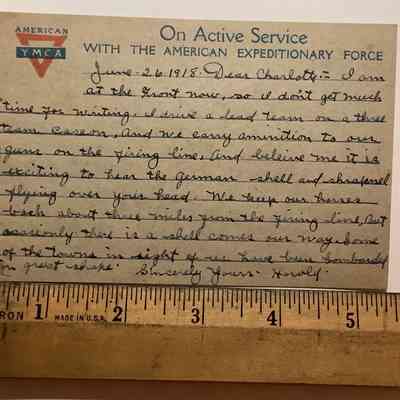 AMERICAN
YMCA
On Active Service
WITH THE AMERICAN EXPEDITIONARY FORCE
June-26-1918. Dear Charlotte:- I am
at the front now, so i don't get much
time for writing, I drive a lead team on a three
team caseon, And we carry aminition to our
guns on the firing line, And beleive me it is
exciting to hear the German shell and shrapnel
flying over your head. We keep our horses
back about three miles from the firing line, But
there is a shell comes our way. Some
of the towns in sight of us have been bombarded
in great shape. Sincerely Yours. Harold.
RON 1 MADE IN U.S.A. 2 3 4 5